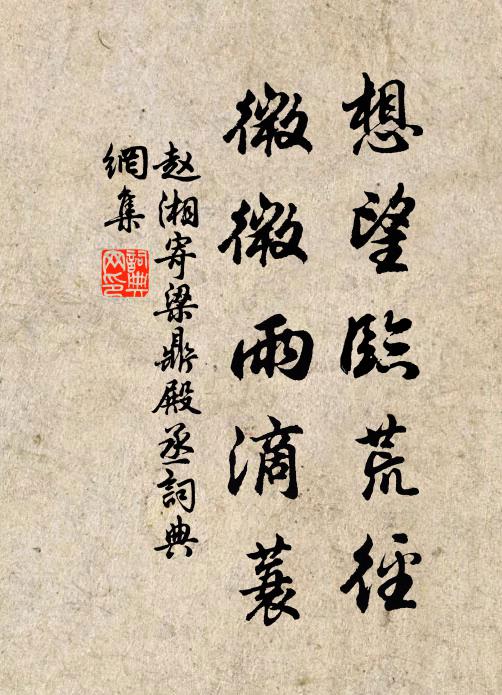 想望臨荒徑
微微雨滴蓑
赵湘寄梁鼎殿丞詞典
網集
詞典
网印